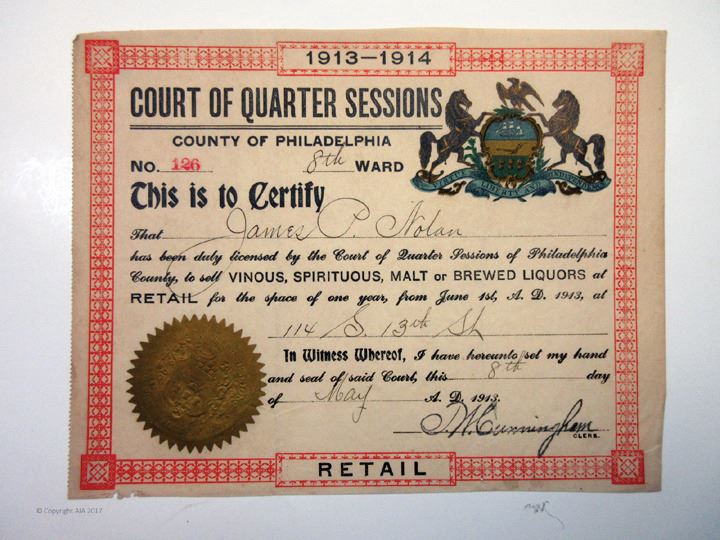 1913-1914
COURT OF QUARTER SESSIONS
COUNTY OF PHILADELPHIA
No. 126 8th WARD
VIRTUE LIBERTY AND INDEPENDENCE
This is to Certify
That James P. Nolan
has been duly licensed by the Court of Quarter Sessions of Philadelphia
County, to sell VINOUS, SPIRITUOUS, MALT or BREWED LIQUORS at
RETAIL for the space of one year, from June 1st, A. D. 1913, at
114 S. 13th St
In Witness Whereof, I have hereunto set my hand
and seal of said Court, this 8th day
of May A. D. 1913.
Cunningham
CLERK.
RETAIL
© Copyright AIA 2017